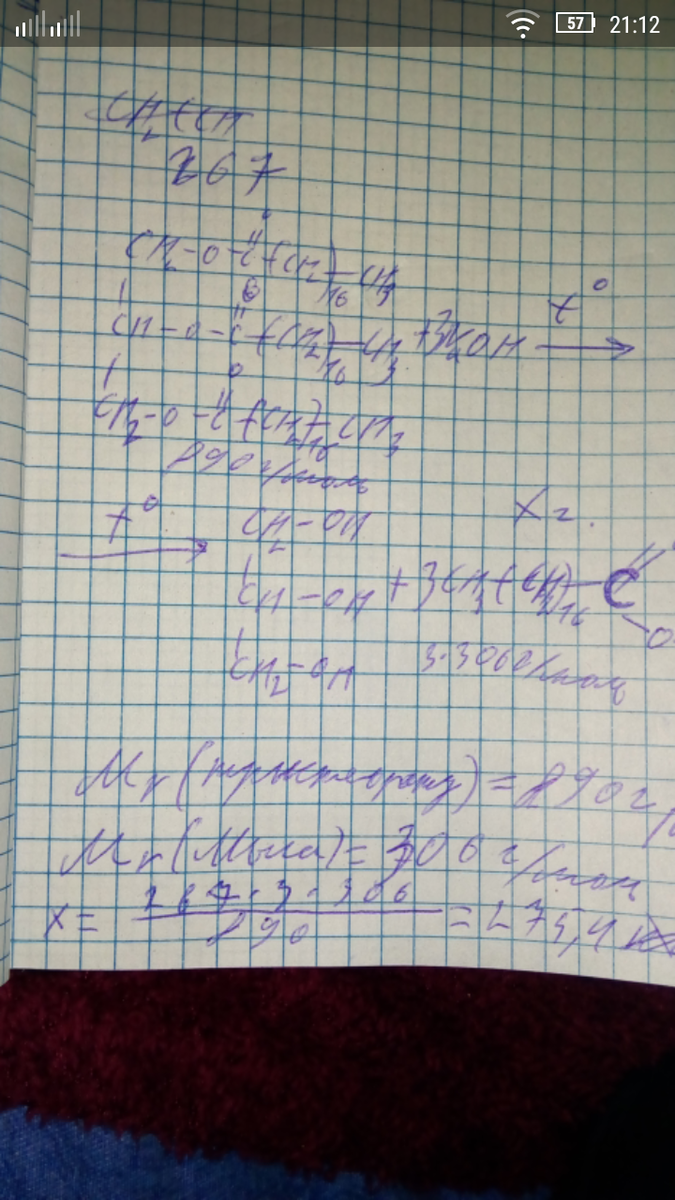 57 21:12
CH₂ CCH
267
CH₂-O-C-(CH₂)₁₆-CH₃
O
CH-O-C-(CH₂)₁₆-CH₃ +3KOH t° →
O
CH₂-O-C-(CH₂)₁₆-CH₃
890 г/моль
t° → CH₂-OH X г.
CH-OH +3CH₃-(CH₂)₁₆-C
O
CH₂-OH 3·306 г/моль
Mr( )=890 г/
Mr(Мыла)=306 г/моль
x= 267·3·306 / 890 =275,4